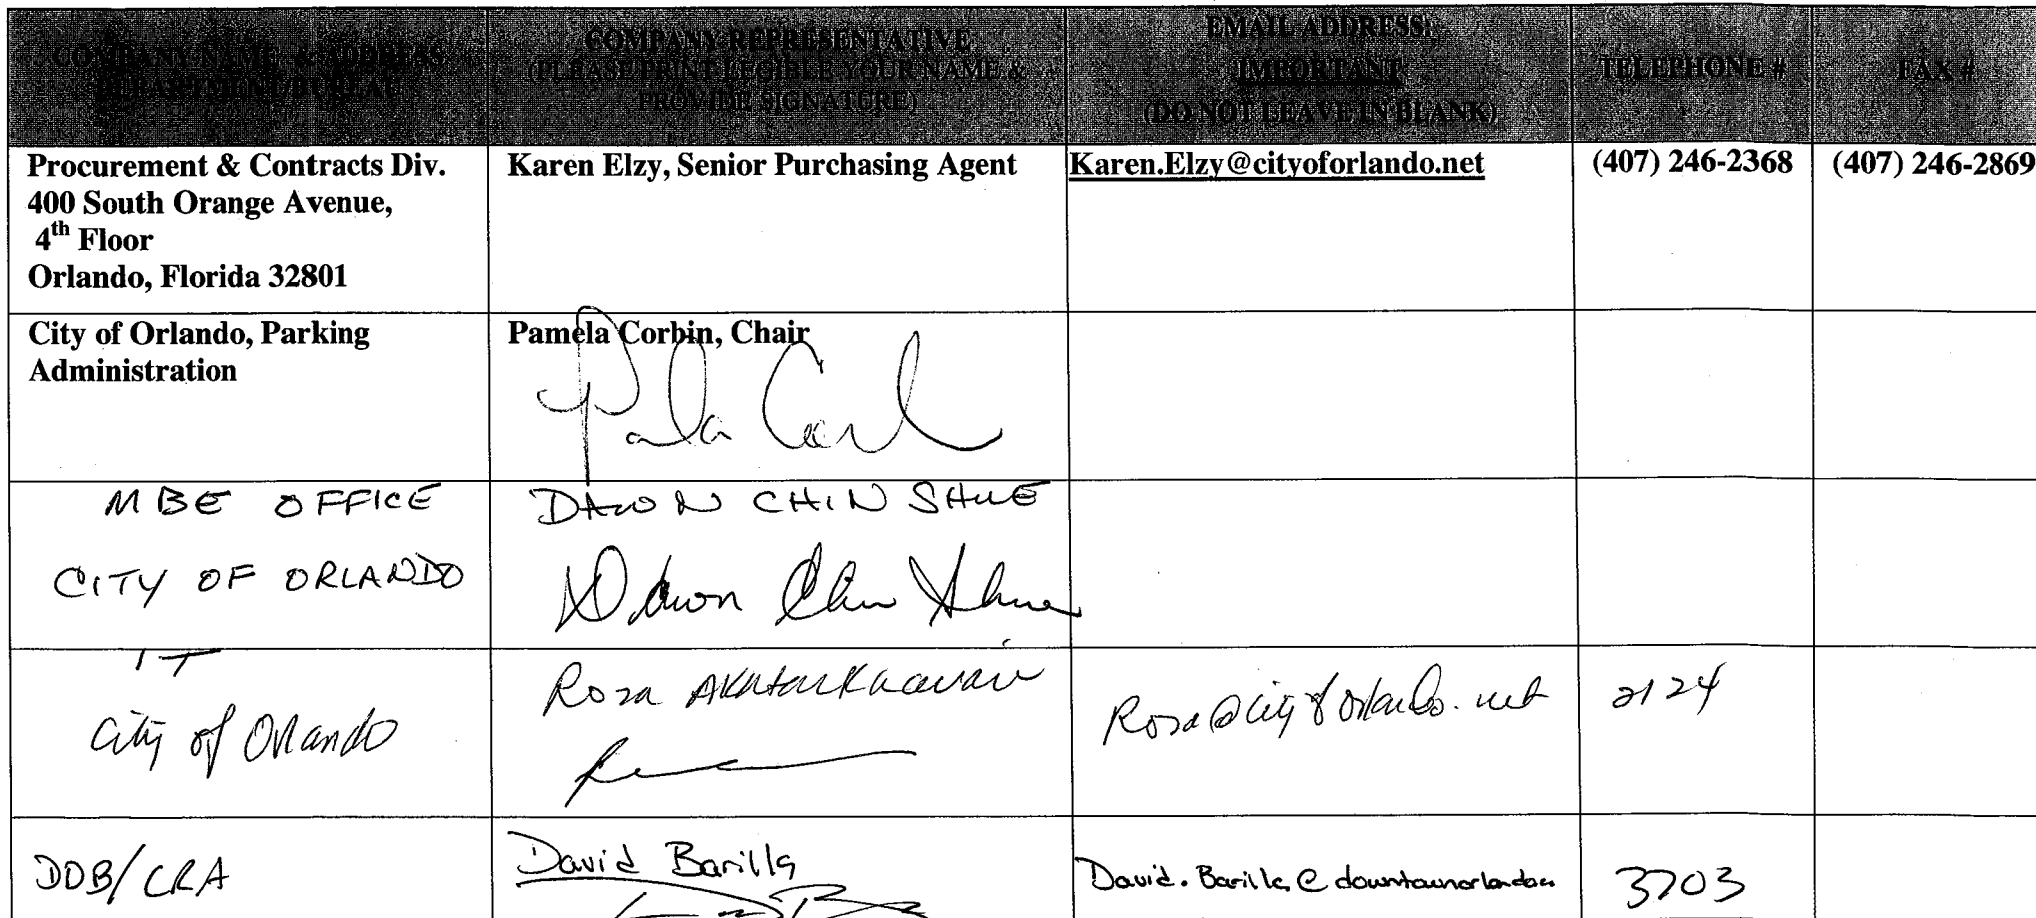 COMPANY NAME & ADDRESS
DEPARTMENT/BUREAU
COMPANY REPRESENTATIVE
(PLEASE PRINT LEGIBLE YOUR NAME &
PROVIDE SIGNATURE)
EMAIL ADDRESS:
IMPORTANT
(DO NOT LEAVE IN BLANK)
TELEPHONE #
FAX #
Procurement & Contracts Div.
400 South Orange Avenue,
4th Floor
Orlando, Florida 32801
Karen Elzy, Senior Purchasing Agent
Karen.Elzy@cityoforlando.net
(407) 246-2368
(407) 246-2869
City of Orlando, Parking
Administration
Pamela Corbin, Chair
MBE OFFICE
CITY OF ORLANDO
DAWN CHIN SHUE
Dawn Chin Shue
IT
City of Orlando
Rosa
Rosa@cityoforlando.net
2124
DDB/CRA
David Barilla
David.Barilla@downtownorlando
3703